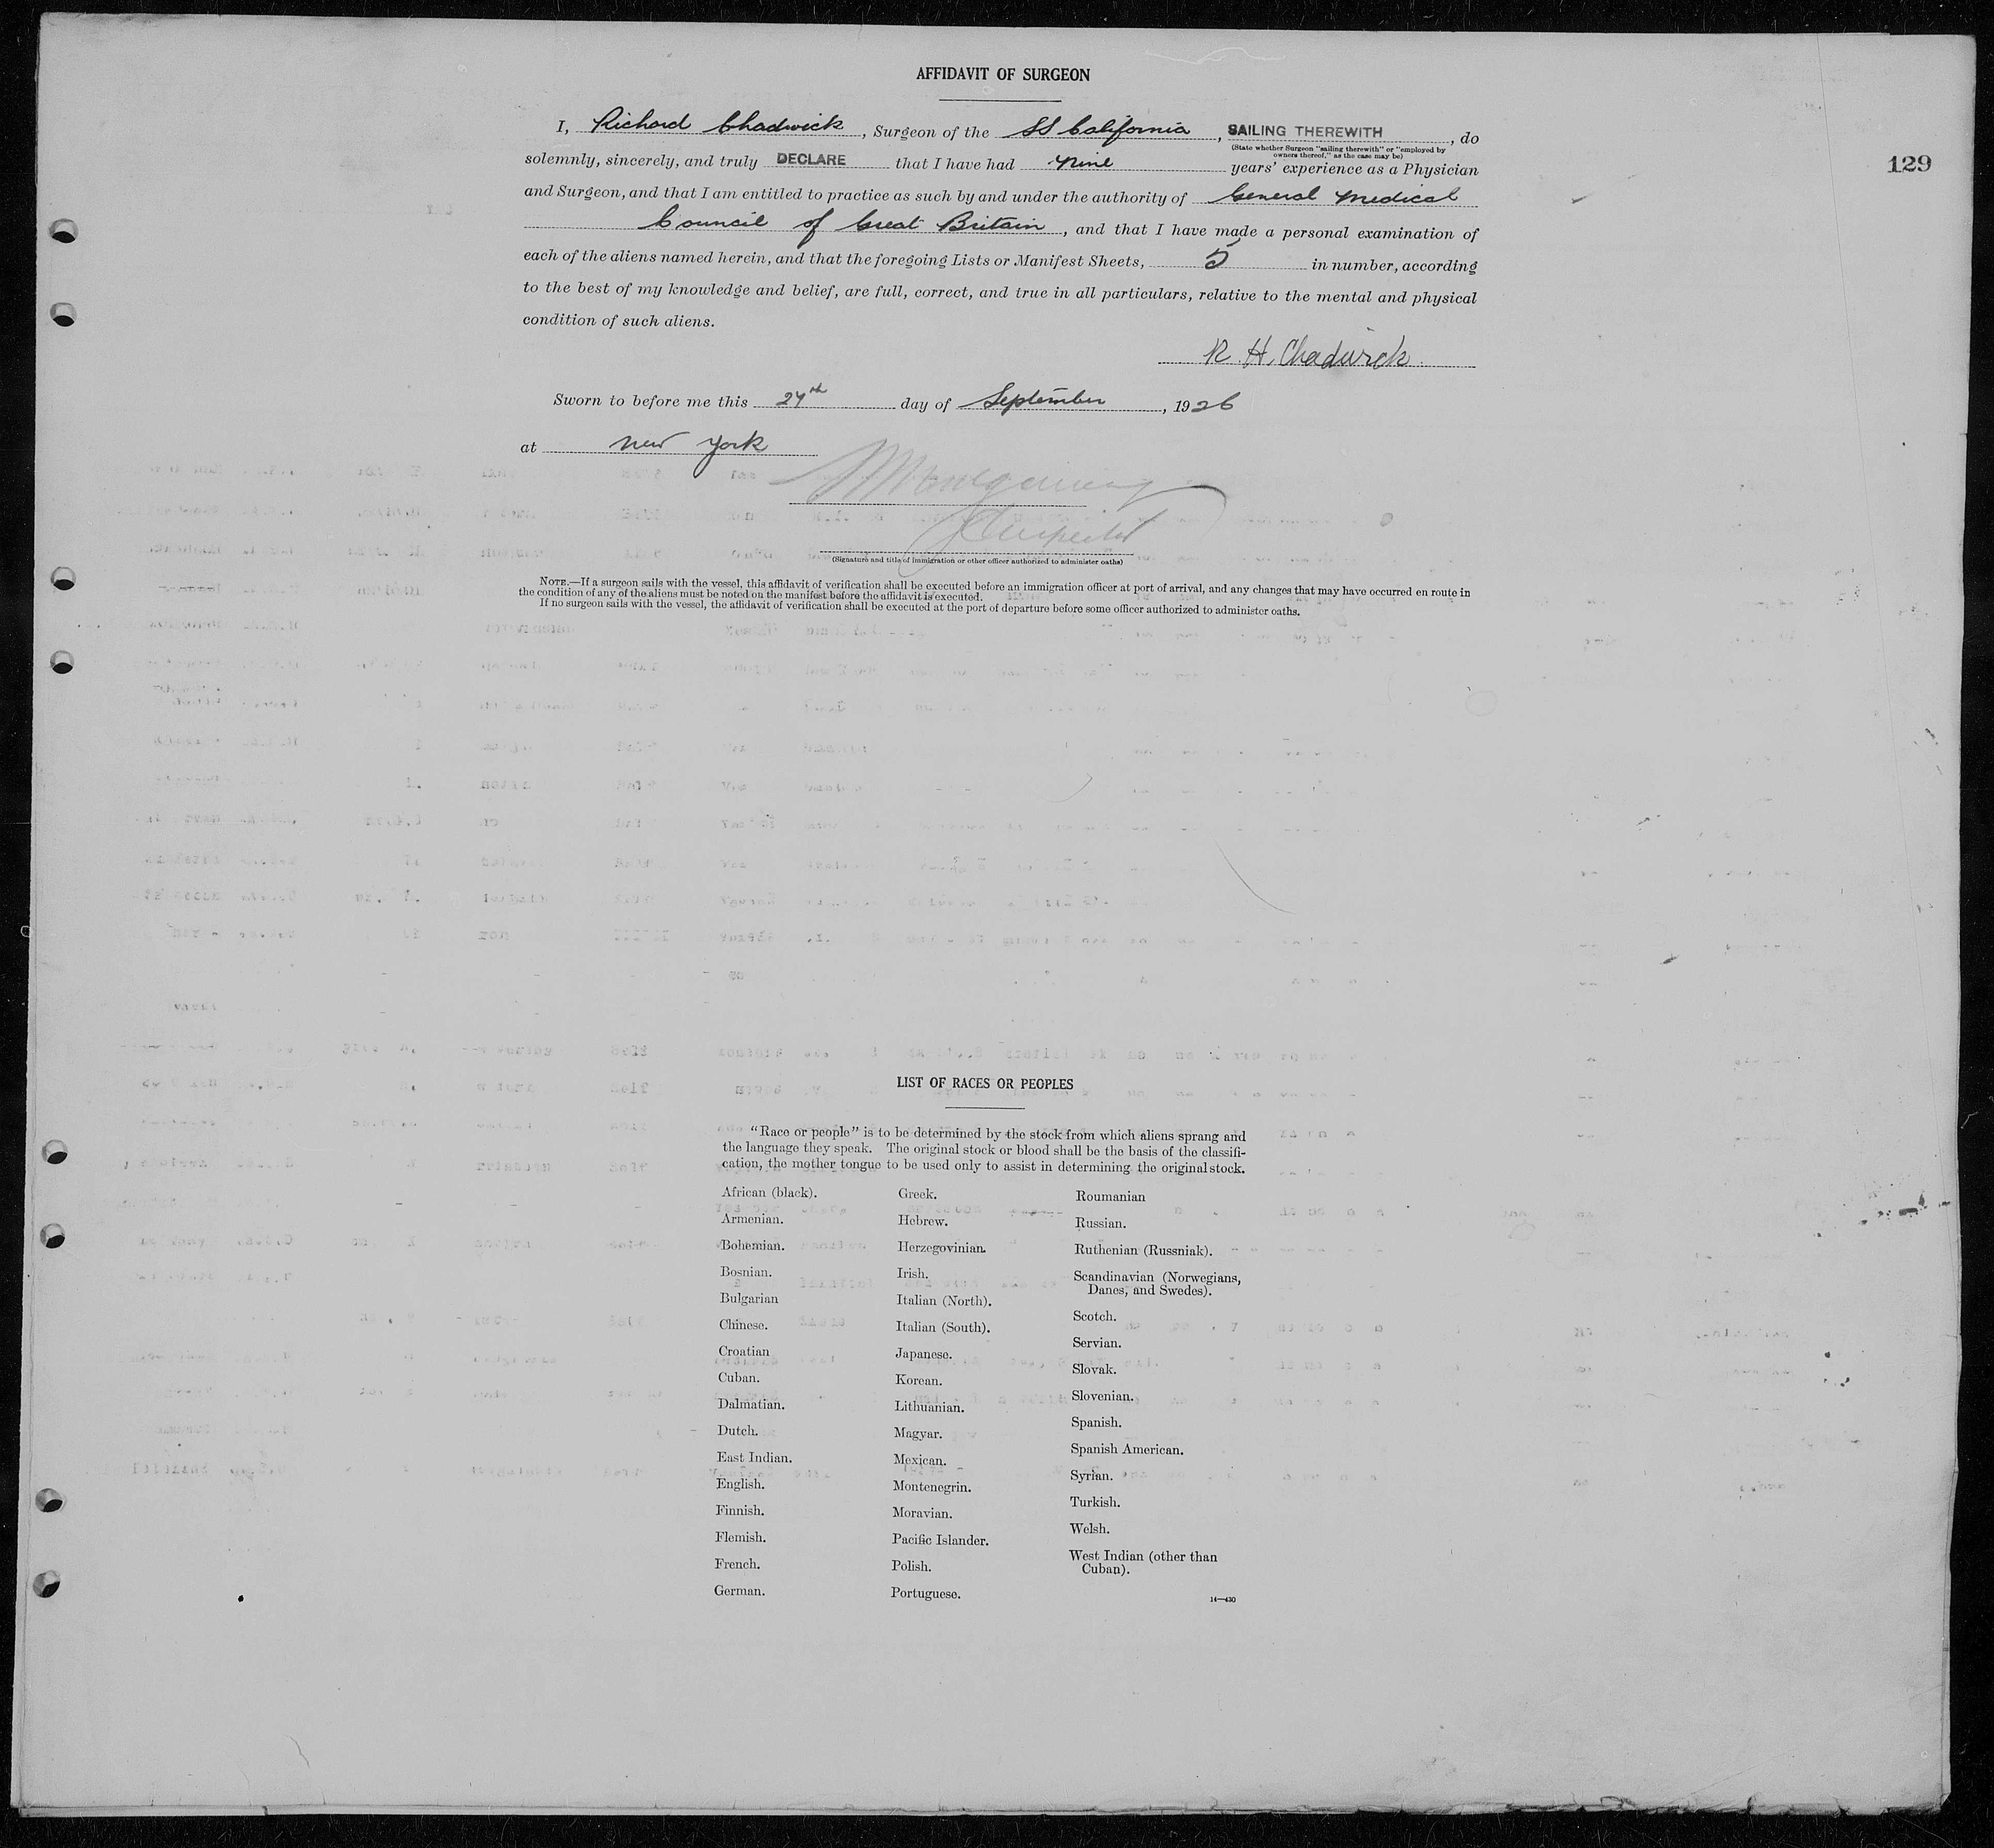 AFFIDAVIT OF SURGEON
I, Richard Chadwick, Surgeon of the SS California, SAILING THEREWITH, do
(State whether Surgeon "sailing therewith" or "employed by
owners thereof," as the case may be)
solemnly, sincerely, and truly DECLARE that I have had Nine years' experience as a Physician
129
and Surgeon, and that I am entitled to practice as such by and under the authority of General Medical
Council of Great Britain, and that I have made a personal examination of
each of the aliens named herein, and that the foregoing Lists or Manifest Sheets, 5 in number, according
to the best of my knowledge and belief, are full, correct, and true in all particulars, relative to the mental and physical
condition of such aliens.
R. H. Chadwick
Sworn to before me this day of September, 1926
at New York
(Signature and title of immigration or other officer authorized to administer oaths)
NOTE.—If a surgeon sails with the vessel, this affidavit of verification shall be executed before an immigration officer at port of arrival, and any changes that may have occurred en route in
the condition of any of the aliens must be noted on the manifest before the affidavit is executed.
If no surgeon sails with the vessel, the affidavit of verification shall be executed at the port of departure before some officer authorized to administer oaths.
LIST OF RACES OR PEOPLES
"Race or people" is to be determined by the stock from which aliens sprang and
the language they speak. The original stock or blood shall be the basis of the classifi-
cation, the mother tongue to be used only to assist in determining the original stock.
African (black).
Armenian.
Bohemian.
Bosnian.
Bulgarian
Chinese.
Croatian
Cuban.
Dalmatian.
Dutch.
East Indian.
English.
Finnish.
Flemish.
French.
German.
Greek.
Hebrew.
Herzegovinian.
Irish.
Italian (North).
Italian (South).
Japanese.
Korean.
Lithuanian.
Magyar.
Mexican.
Montenegrin.
Moravian.
Pacific Islander.
Polish.
Portuguese.
Roumanian
Russian.
Ruthenian (Russniak).
Scandinavian (Norwegians,
Danes, and Swedes).
Scotch.
Servian.
Slovak.
Slovenian.
Spanish.
Spanish American.
Syrian.
Turkish.
Welsh.
West Indian (other than
Cuban).
14—430